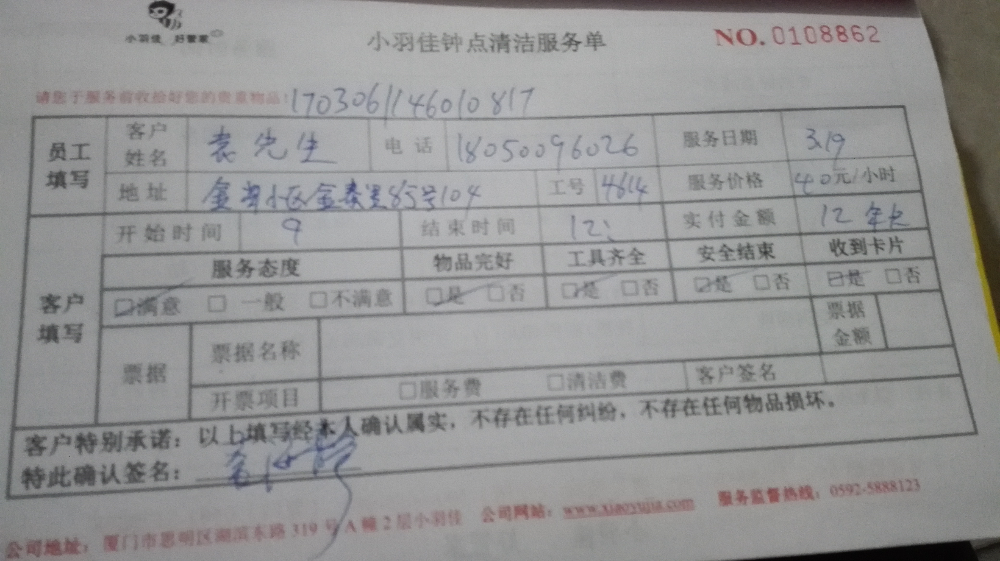 小羽佳 好管家
小羽佳钟点清洁服务单
NO.0108862
请您于服务前收拾好您的贵重物品! 1703061146010817
员工填写 客户姓名 袁先生 电话 18050096026 服务日期 3.19
地址 金尚小区金泰里85号104 工号 4614 服务价格 40元/小时
开始时间 9 结束时间 12: 实付金额 12
客户填写 服务态度 物品完好 工具齐全 安全结束 收到卡片
☑满意 □一般 □不满意 ☑是 □否 ☑是 □否 ☑是 □否 ☑是 □否
票据 票据名称 票据金额
开票项目 □服务费 □清洁费 客户签名
客户特别承诺：以上填写经本人确认属实，不存在任何纠纷，不存在任何物品损坏。
特此确认签名：
公司地址：厦门市思明区湖滨东路319号A幢2层小羽佳 公司网站：www.xiaoyujia.com 服务监督热线：0592-5888123